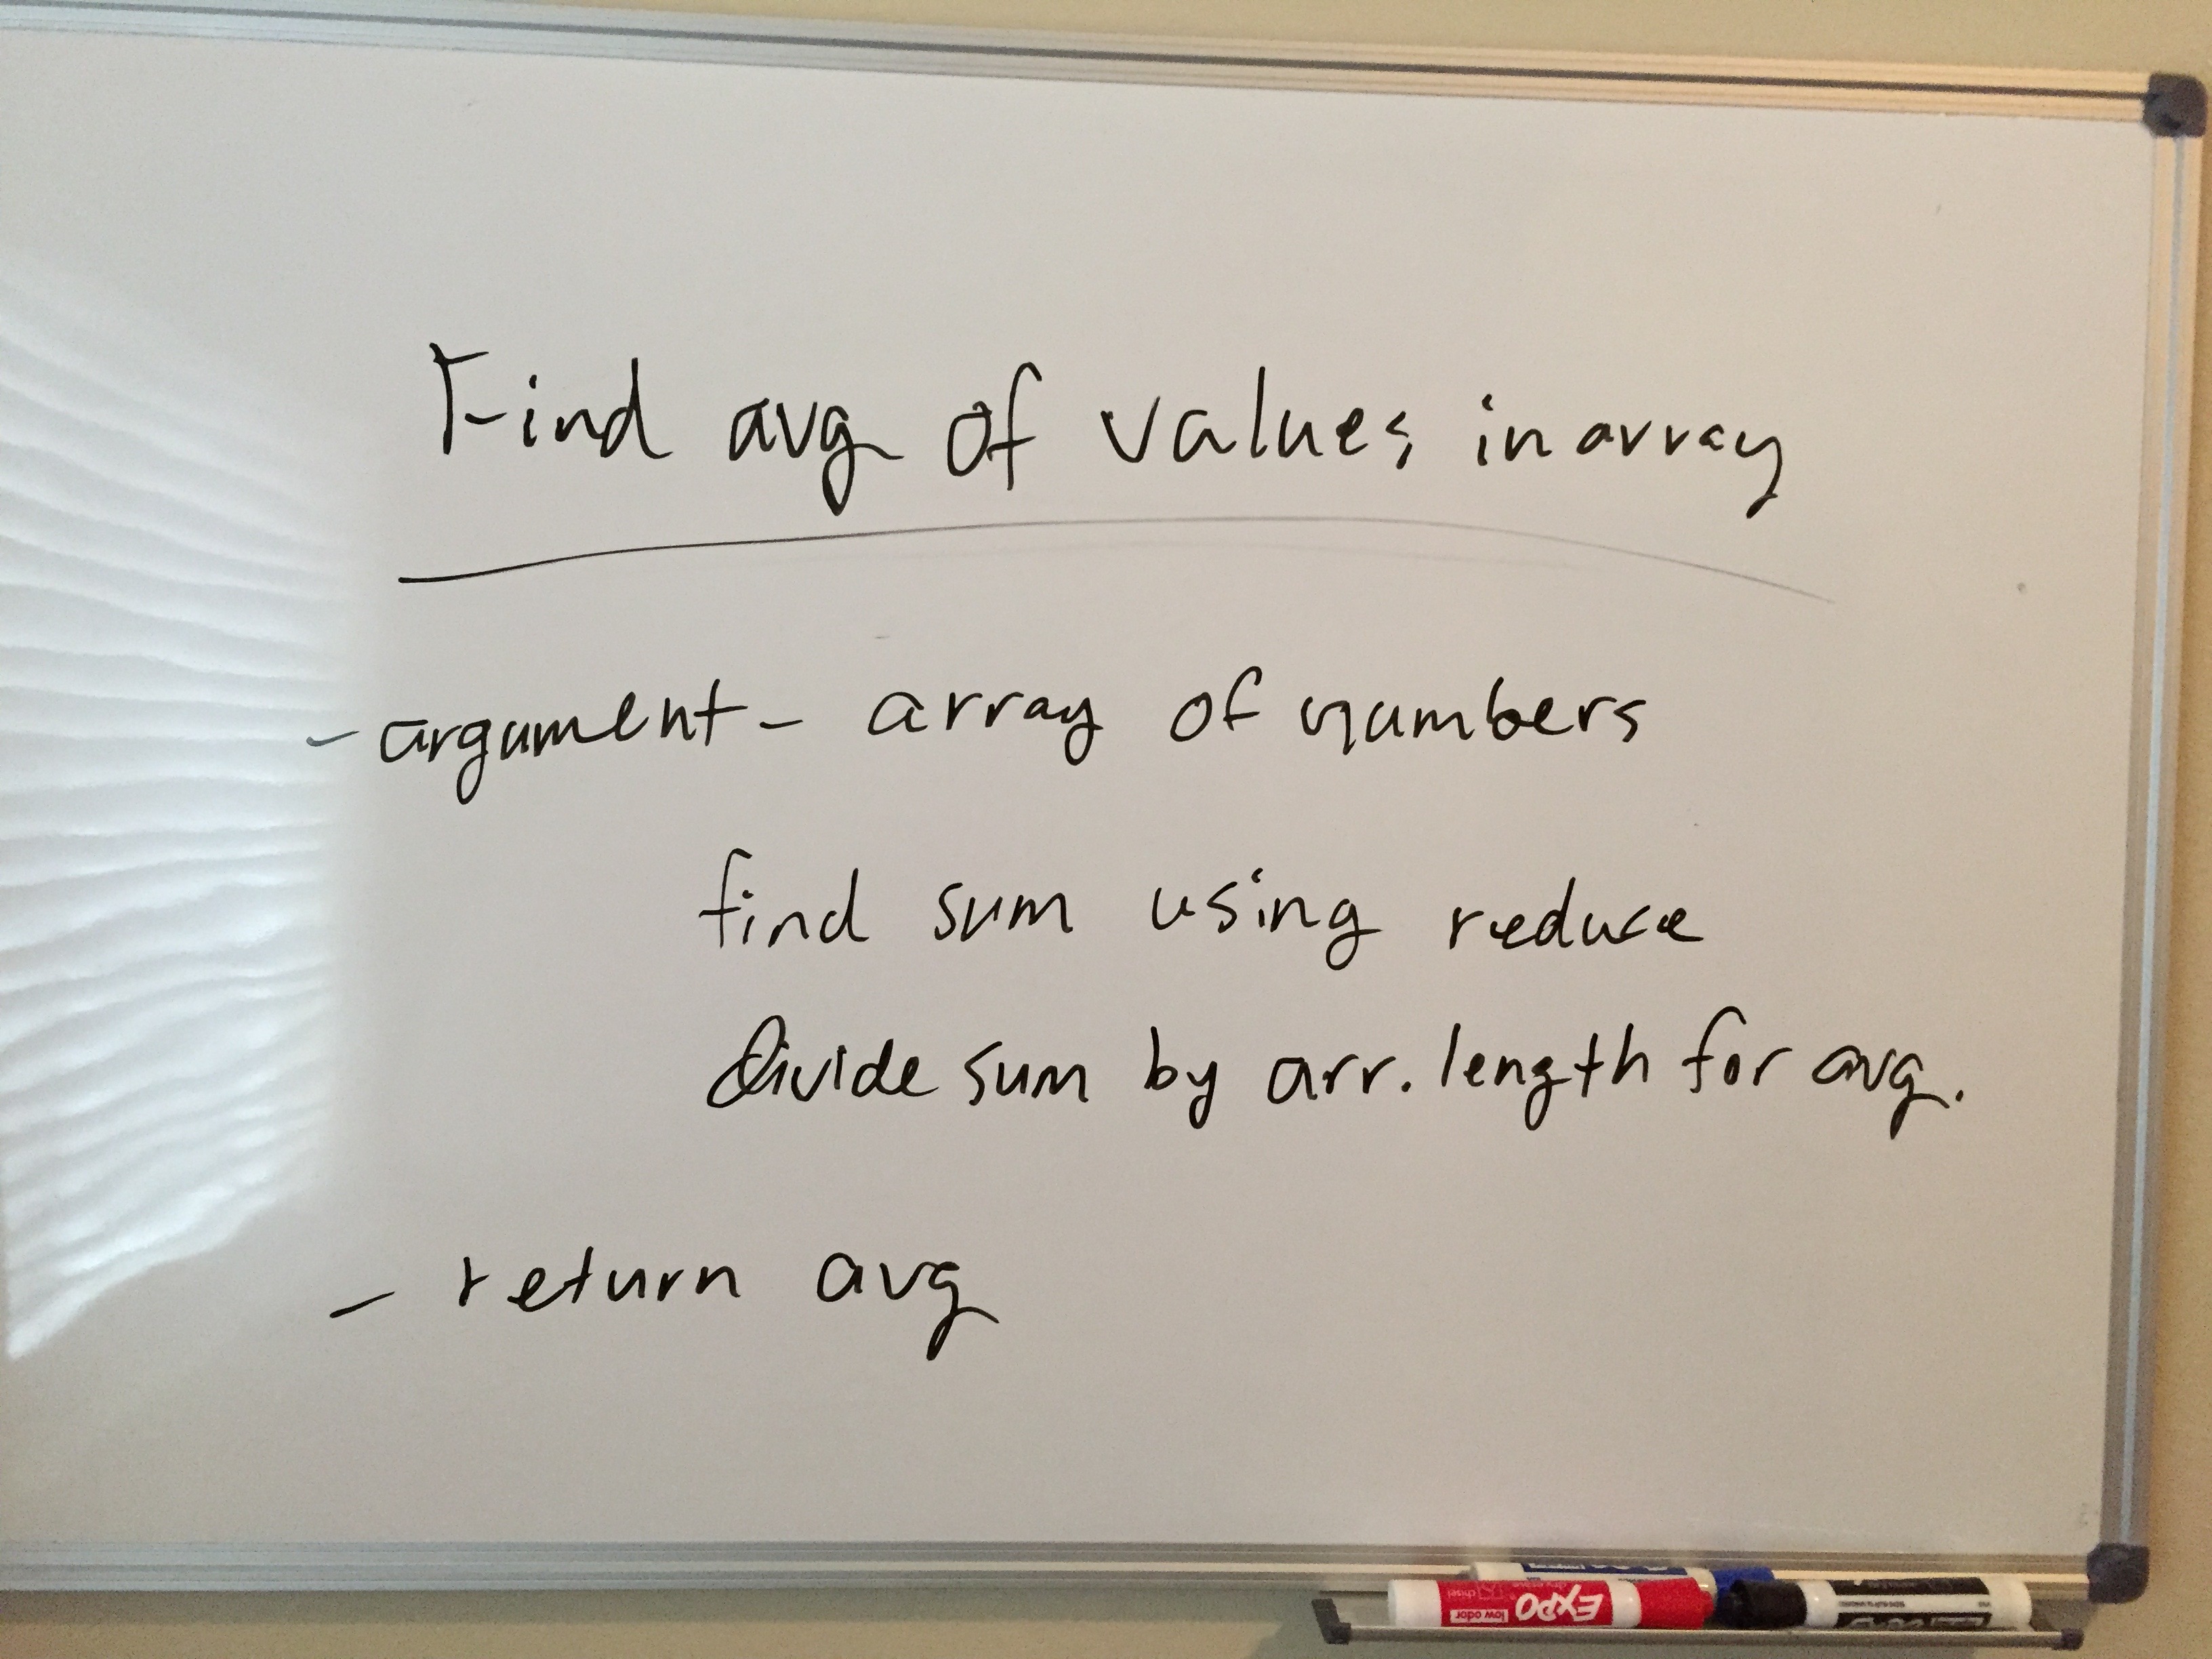 Find avg of values in array
- argument - array of numbers
find sum using reduce
Divide sum by arr.length for avg.
- return avg
EXPO
low odor